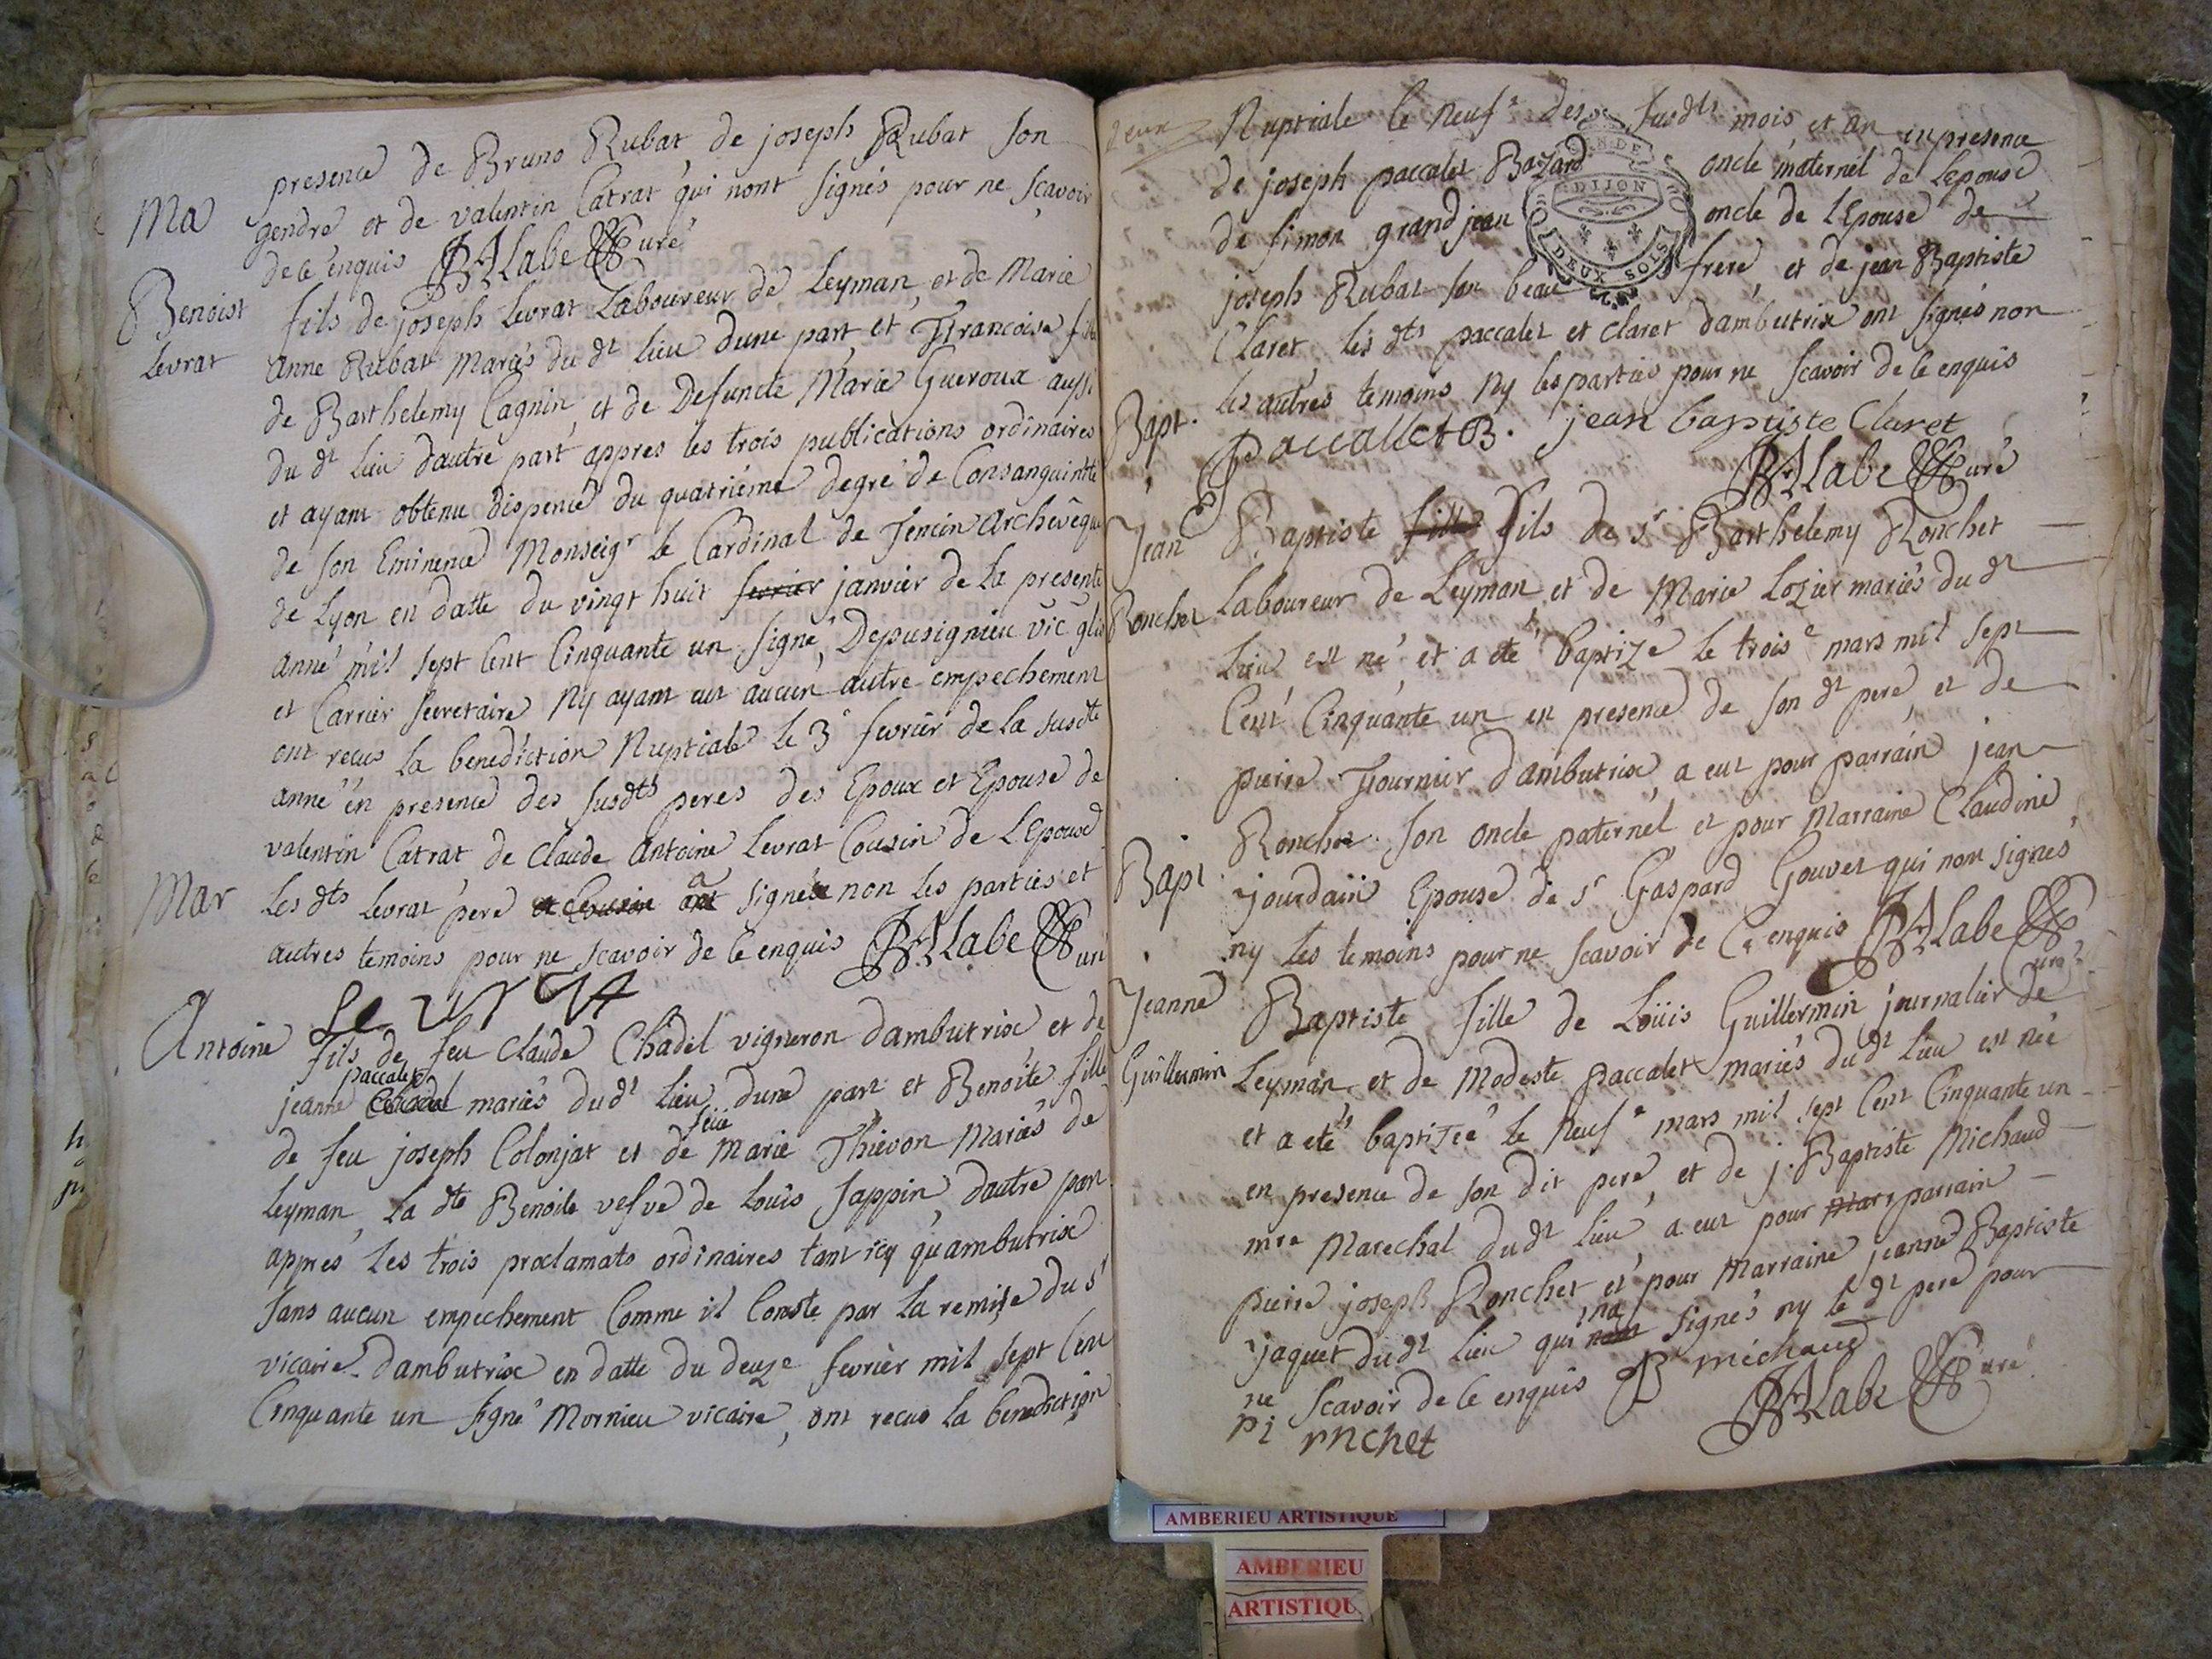 presence de Bruno Rubat de joseph Rubat son
Ma gendre et de valentin Catrat qui nont signés pour ne scavoir
de ce enquis Labe Curé
Benoist fils de joseph Levrat Laboureur de Leyman et de Marie
Levrat anne Rubat Mariés du dt lieu dune part et Francoise fille
de Barthelemy Cagnin et de Defuncte Marie Gueroux aussi
du dt Lieu dautre part appres les trois publications ordinaires
et ayant obtenu dispence du quatriême degré de Consanguinité
de son Eminence Monseigr le Cardinal de Tencin Archevêque
de Lyon en datte du vingt huit fevrier janvier de la presente
anné mil sept Cent Cinquante un signé Depusignieu vic gl
et Carrier secretaire Ny ayant eut aucun autre empechement
ont recus la benediction Nuptiale le 3e fevrier de la susdte
anné en presence des susdts peres des Epoux et Epouse de
valentin Catrat de Claude Antoine Levrat Cousin de L'Epouse
Mar Les dts Levrat pere et Cousin ont a signé non les parties et
autres temoins pour ne scavoir de ce enquis Labe Curé
Le vrat
Antoine fils de feu Claude Chadel vigneron dambutrix et de
jeanne paccalet mariés dudt Lieu dune part et Benoite fille
de feu joseph Colonjat et de feüe Marie Thievon Mariés de
Leyman La dte Benoite vefve de Louis Sappin dautre part
appres Les trois proclamats ordinaires tant icy qu'ambutrix
sans aucun empechement Comme il Conste par La remise du Sr
vicaire dambutrix en datte du deuxe fevrier mil sept Cent
Cinquante un signé Mornieu vicaire, ont recus la benediction
2 eme
Nuptiale le Neufe des susdts mois et an en presence
de joseph paccalet Bazard oncle maternel de Lepouse
de simon grandjean oncle de l'Epouse de
joseph Rubat son beau frere, et de jean Baptiste
Claret les dts paccalet et Claret dambutrix ont signés non
Bapt. les autres temoins Ny les parties pour ne scavoir de ce enquis
Paccallet B. jean baptiste Claret
Labe Curé
Jean Baptiste fille fils de Sr Barthélemy Ronchet
Ronchet Laboureur de Leyman et de Marie Lozier mariés du dt
Lieu est né et a eté baptizé le troise mars mil sept
Cent Cinquante un en presence de son dt pere et de
pierre Fournier d'ambutrix, a eut pour parrain jean
Ronchet son oncle paternel et pour Marraine Claudine
Bapt. jourdain Epouse de Sr Gaspard Gouvet qui nont signés
ny les temoins pour ne scavoir de Ce enquis Labe Curé
Jeanne Baptiste fille de Loüis Guillermin journalier de
Guillermin Leyman et de Modeste Paccalet mariés du dt Lieu est née
et a eté baptizée le Neufe mars mil sept Cent Cinquante un
en presence de son dit pere et de j. Baptiste Michaud
mre Marechal du dt lieu, a eut pour Mar parrain
pierre joseph Ronchet et pour Marraine jeanne Baptiste
jaquet du dt Lieu qui nont na signés ny le dt pere pour
ne scavoir de ce enquis B michaud
Labe Curé
pi rnchet
DIJON
DEUX SOLS
AMBERIEU ARTISTIQUE
AMBERIEU
ARTISTIQU